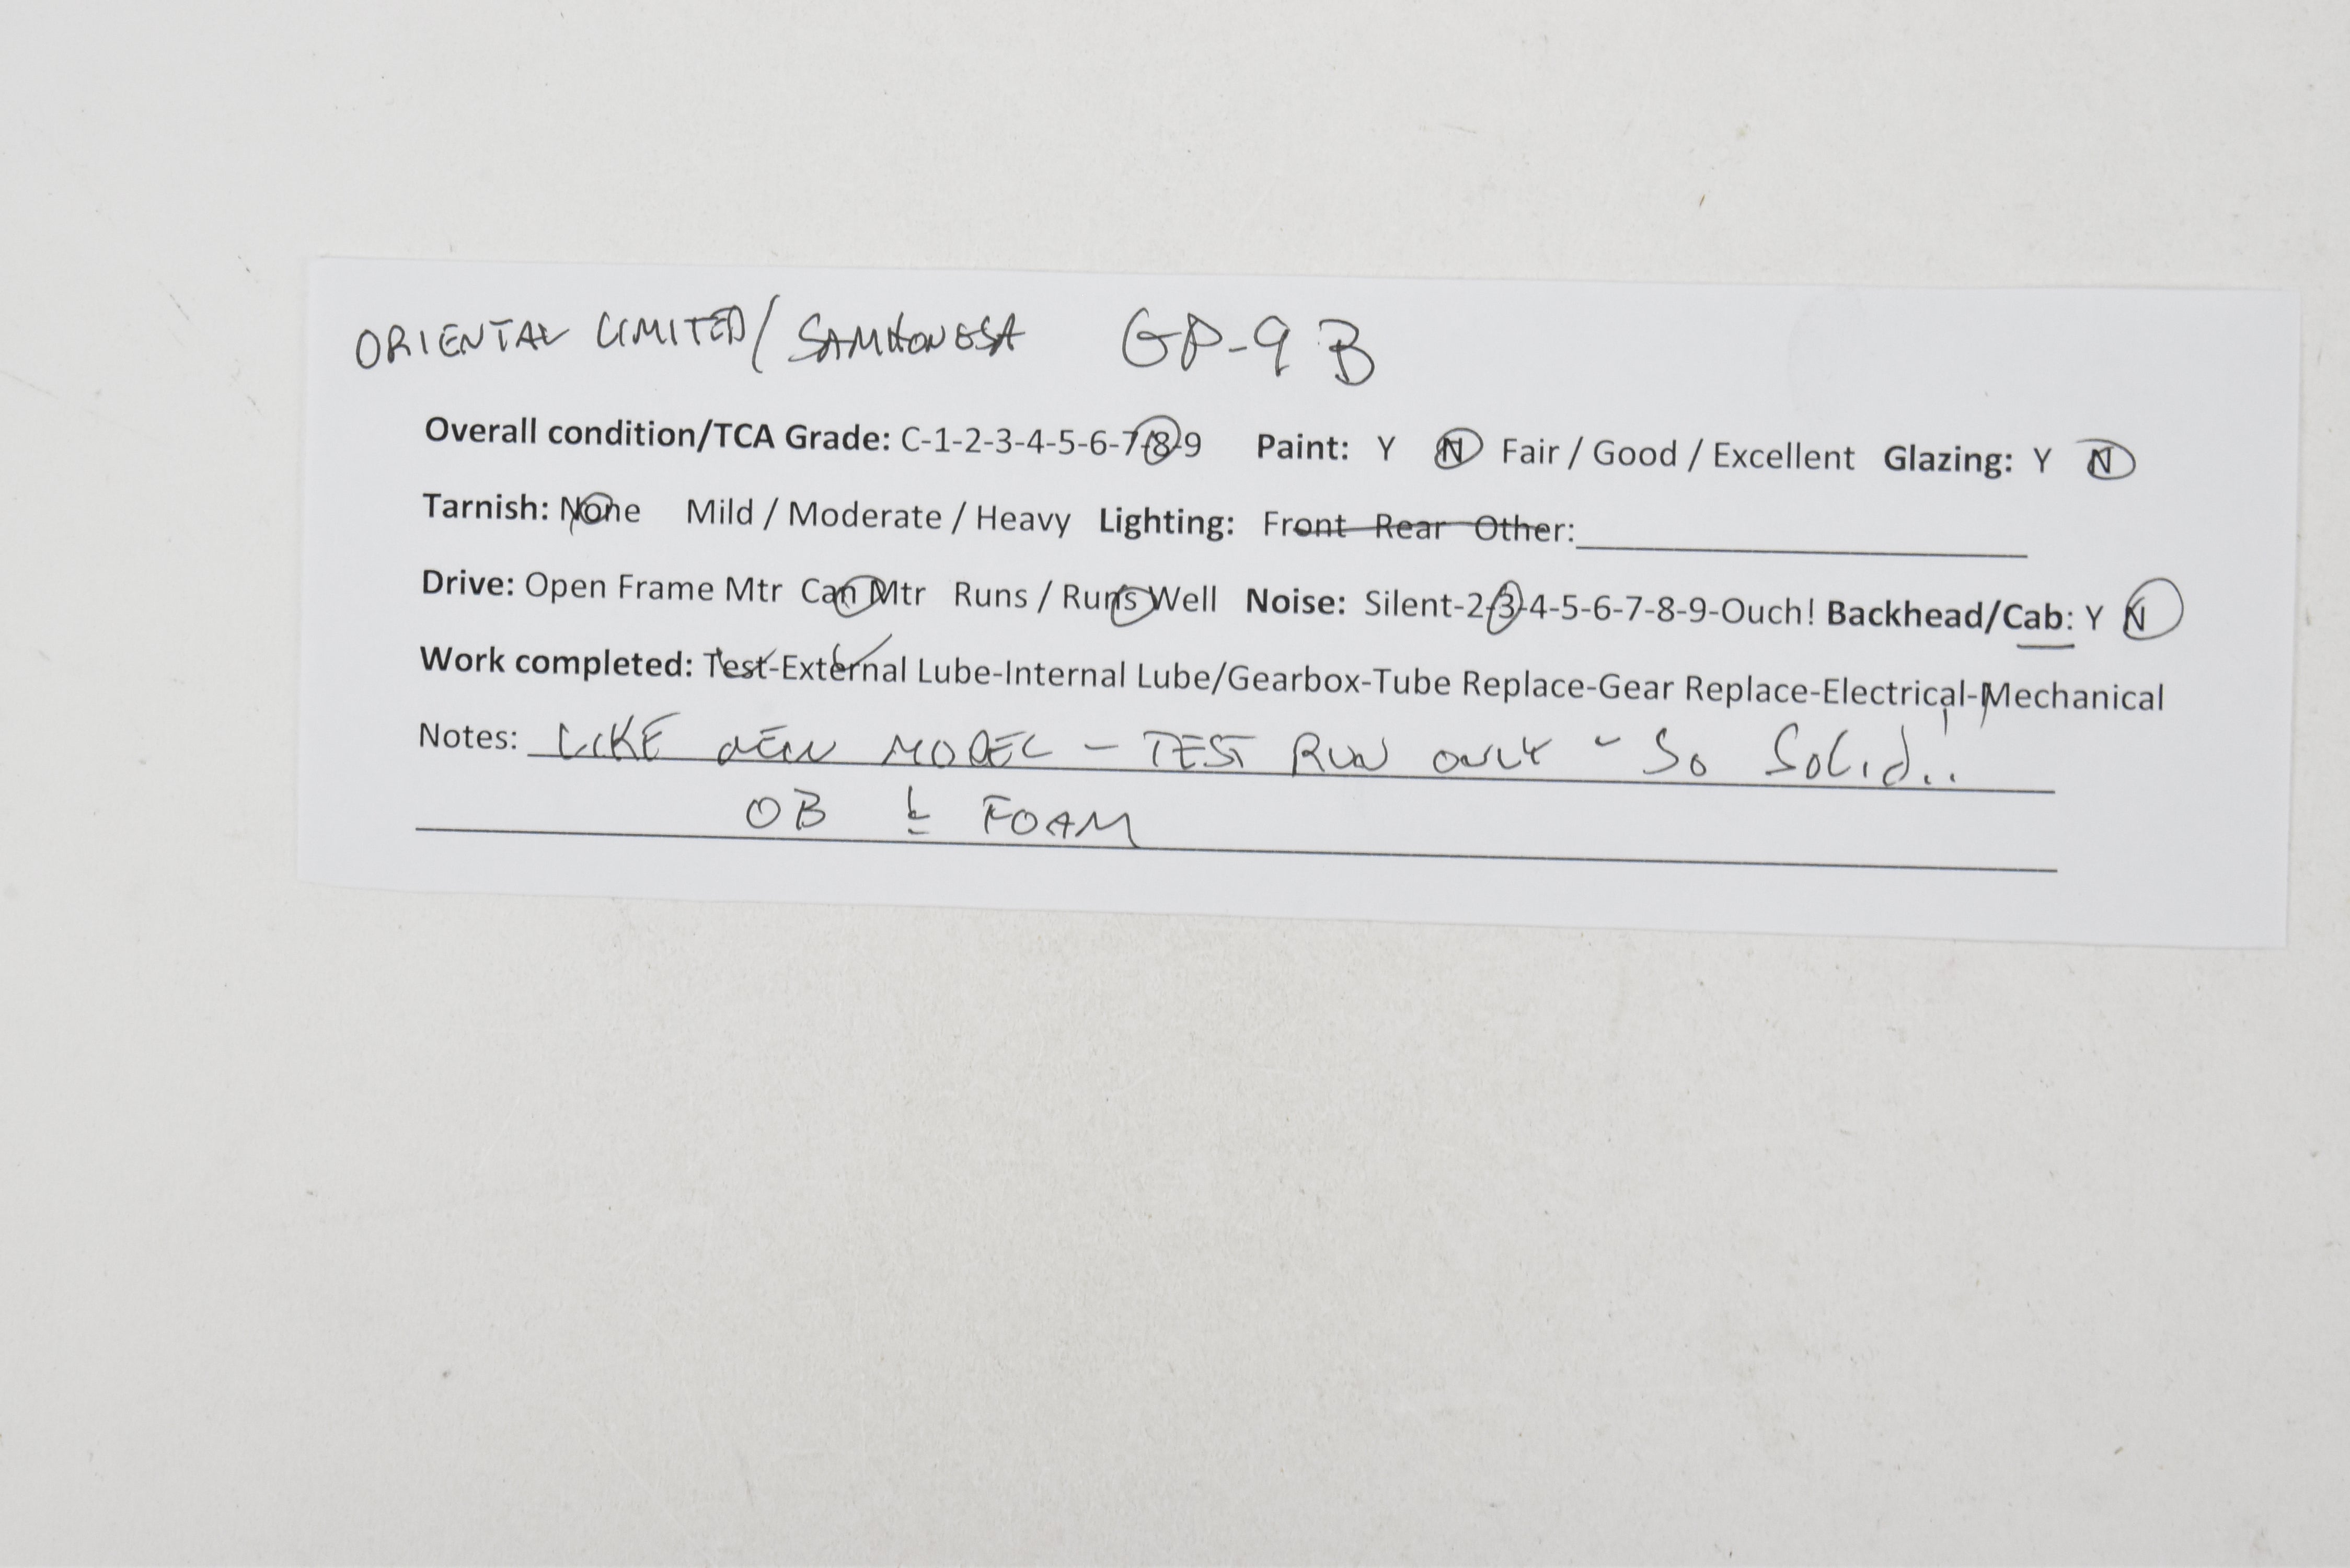 ORIENTAL LIMITED/SAMHONGSA GP-9 B
Overall condition/TCA Grade: C-1-2-3-4-5-6-7-8-9 Paint: Y N Fair / Good / Excellent Glazing: Y N
Tarnish: None Mild / Moderate / Heavy Lighting: Front Rear Other:
Drive: Open Frame Mtr Can Mtr Runs / Runs Well Noise: Silent-2-3-4-5-6-7-8-9-Ouch! Backhead/Cab: Y N
Work completed: Test-External Lube-Internal Lube/Gearbox-Tube Replace-Gear Replace-Electrical-Mechanical
Notes: LIKE NEW MODEL - TEST RUN ONLY - SO SOLID!!
OB & FOAM